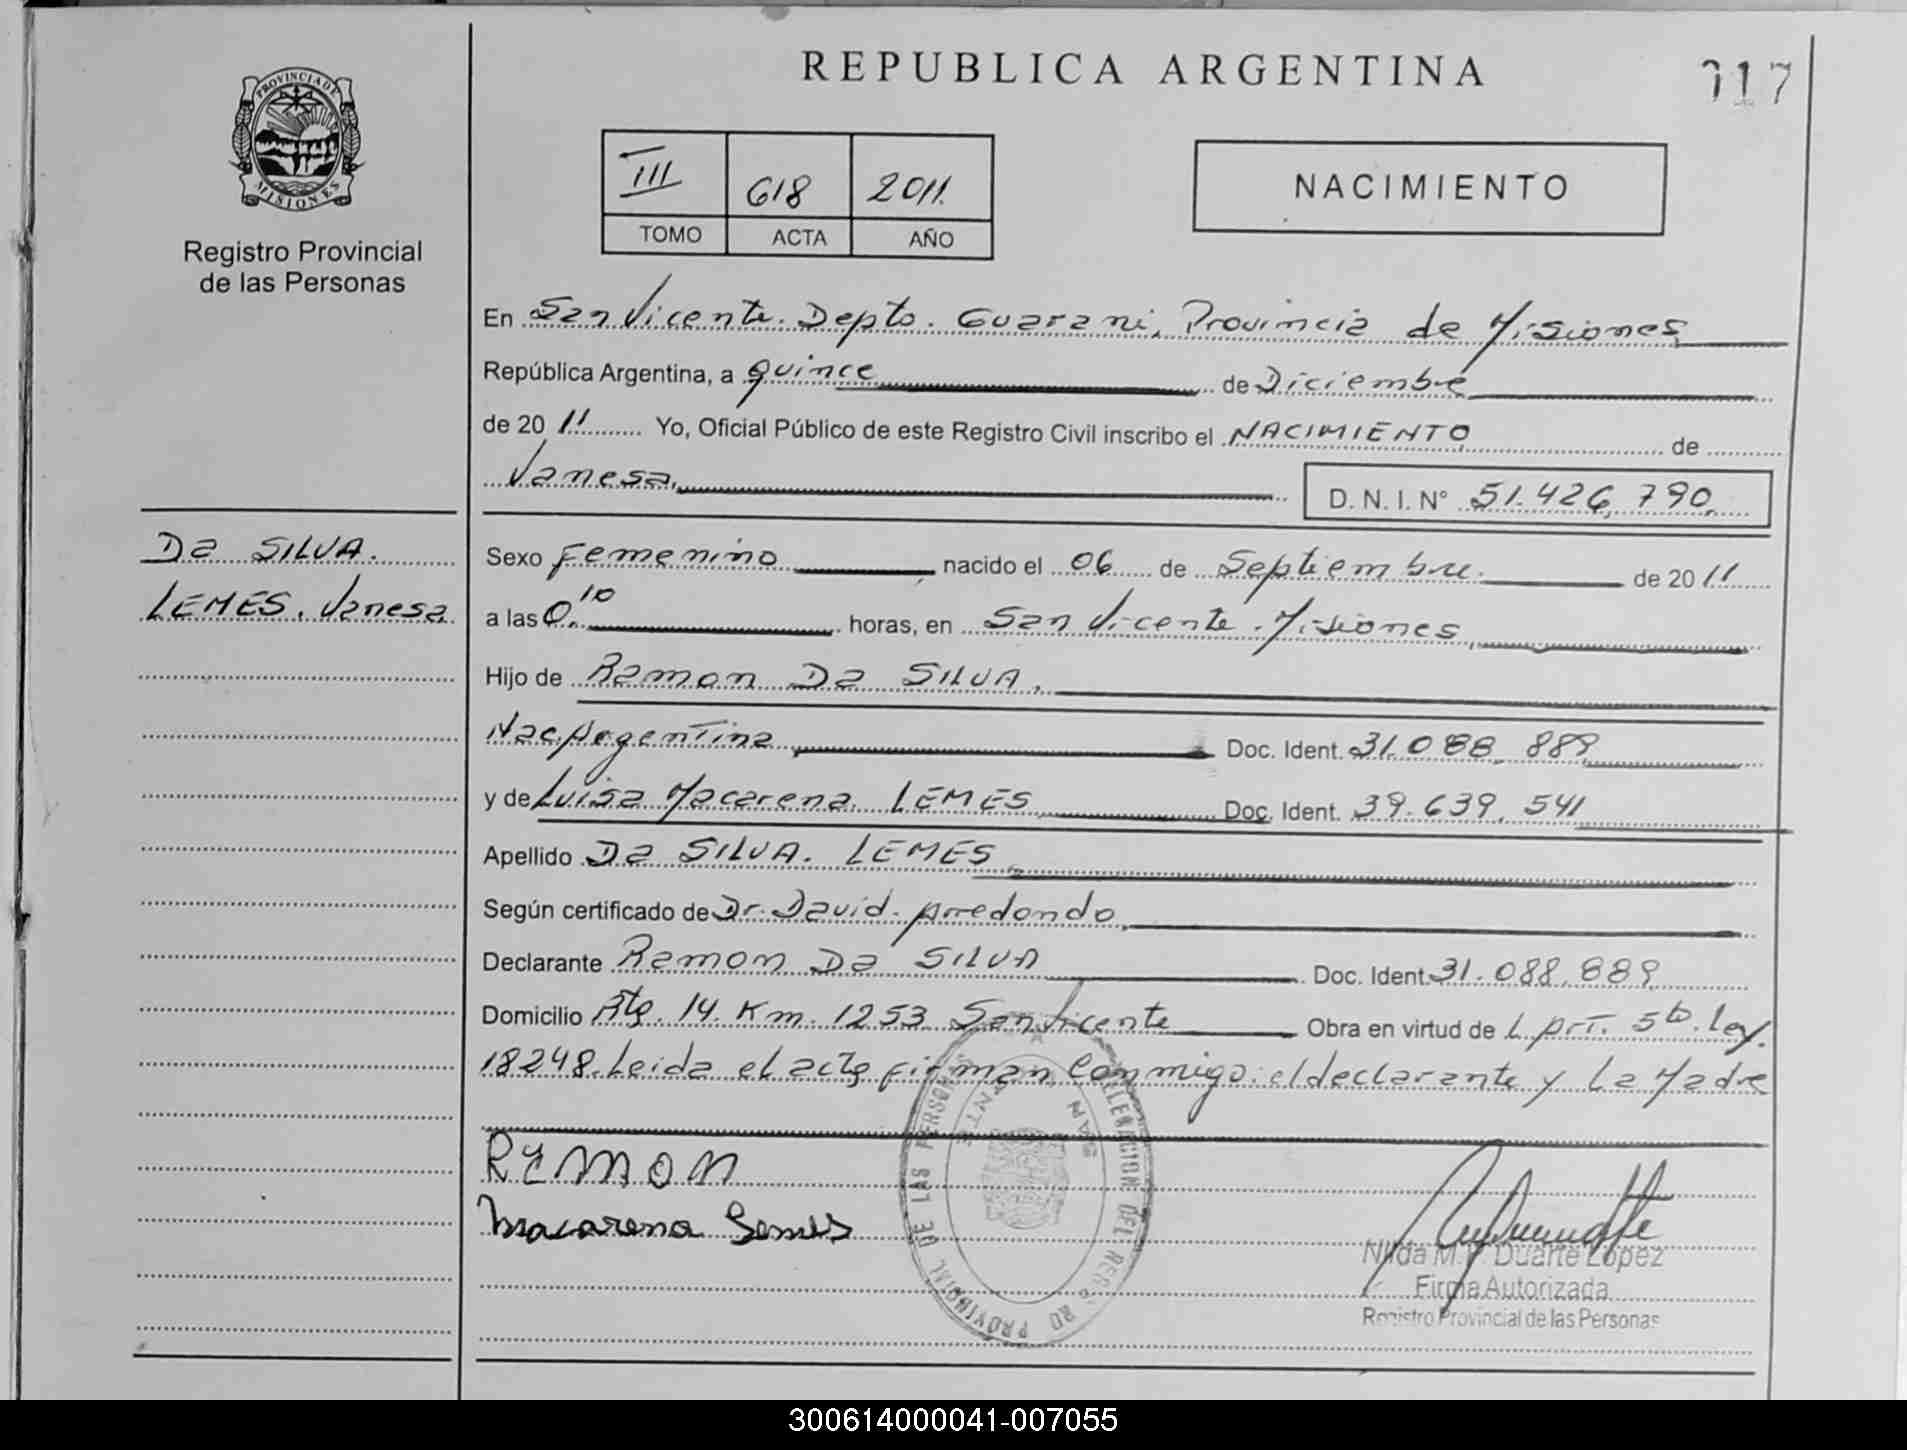 REPUBLICA ARGENTINA
317
PROVINCIA DE
MISIONES
Registro Provincial
de las Personas
III 618 2011.
TOMO ACTA AÑO
NACIMIENTO
En San Vicente. Depto. Guarani, Provincia de Misiones
República Argentina, a quince de Diciembre
de 20 11 Yo, Oficial Público de este Registro Civil inscribo el NACIMIENTO de
Vanesa.
D. N. I. N° 51.426.790.
Da SILVA.
LEMES. Vanesa
Sexo Femenino nacido el 06 de Septiembre. de 20 11
a las 0,10 horas, en San Vicente. Misiones
Hijo de Ramon Da SILVA.
Nac. Argentina Doc. Ident. 31.088.889
y de Luisa Macarena LEMES Doc. Ident. 39.639.541
Apellido Da SILVA. LEMES
Según certificado de Dr. David Arredondo
Declarante Ramon Da SILVA Doc. Ident. 31.088.889
Domicilio Rta. 14. Km. 1253 San Vicente Obra en virtud de L. prt. 5to. Ley.
18248. Leida el acta firman conmigo. el declarante y La Madre
RAMON
Macarena Lemes
SAN
DE LAS PERSONAS
PROVINCIAL
Nilda M. Duarte Lopez
Firma Autorizada
Registro Provincial de las Personas
300614000041-007055